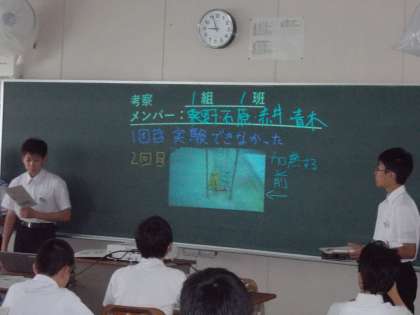 考察 1組 1班
メンバー:奥野 石原・赤井 青木
1回目 実験できなかった
2回目
加熱する
前